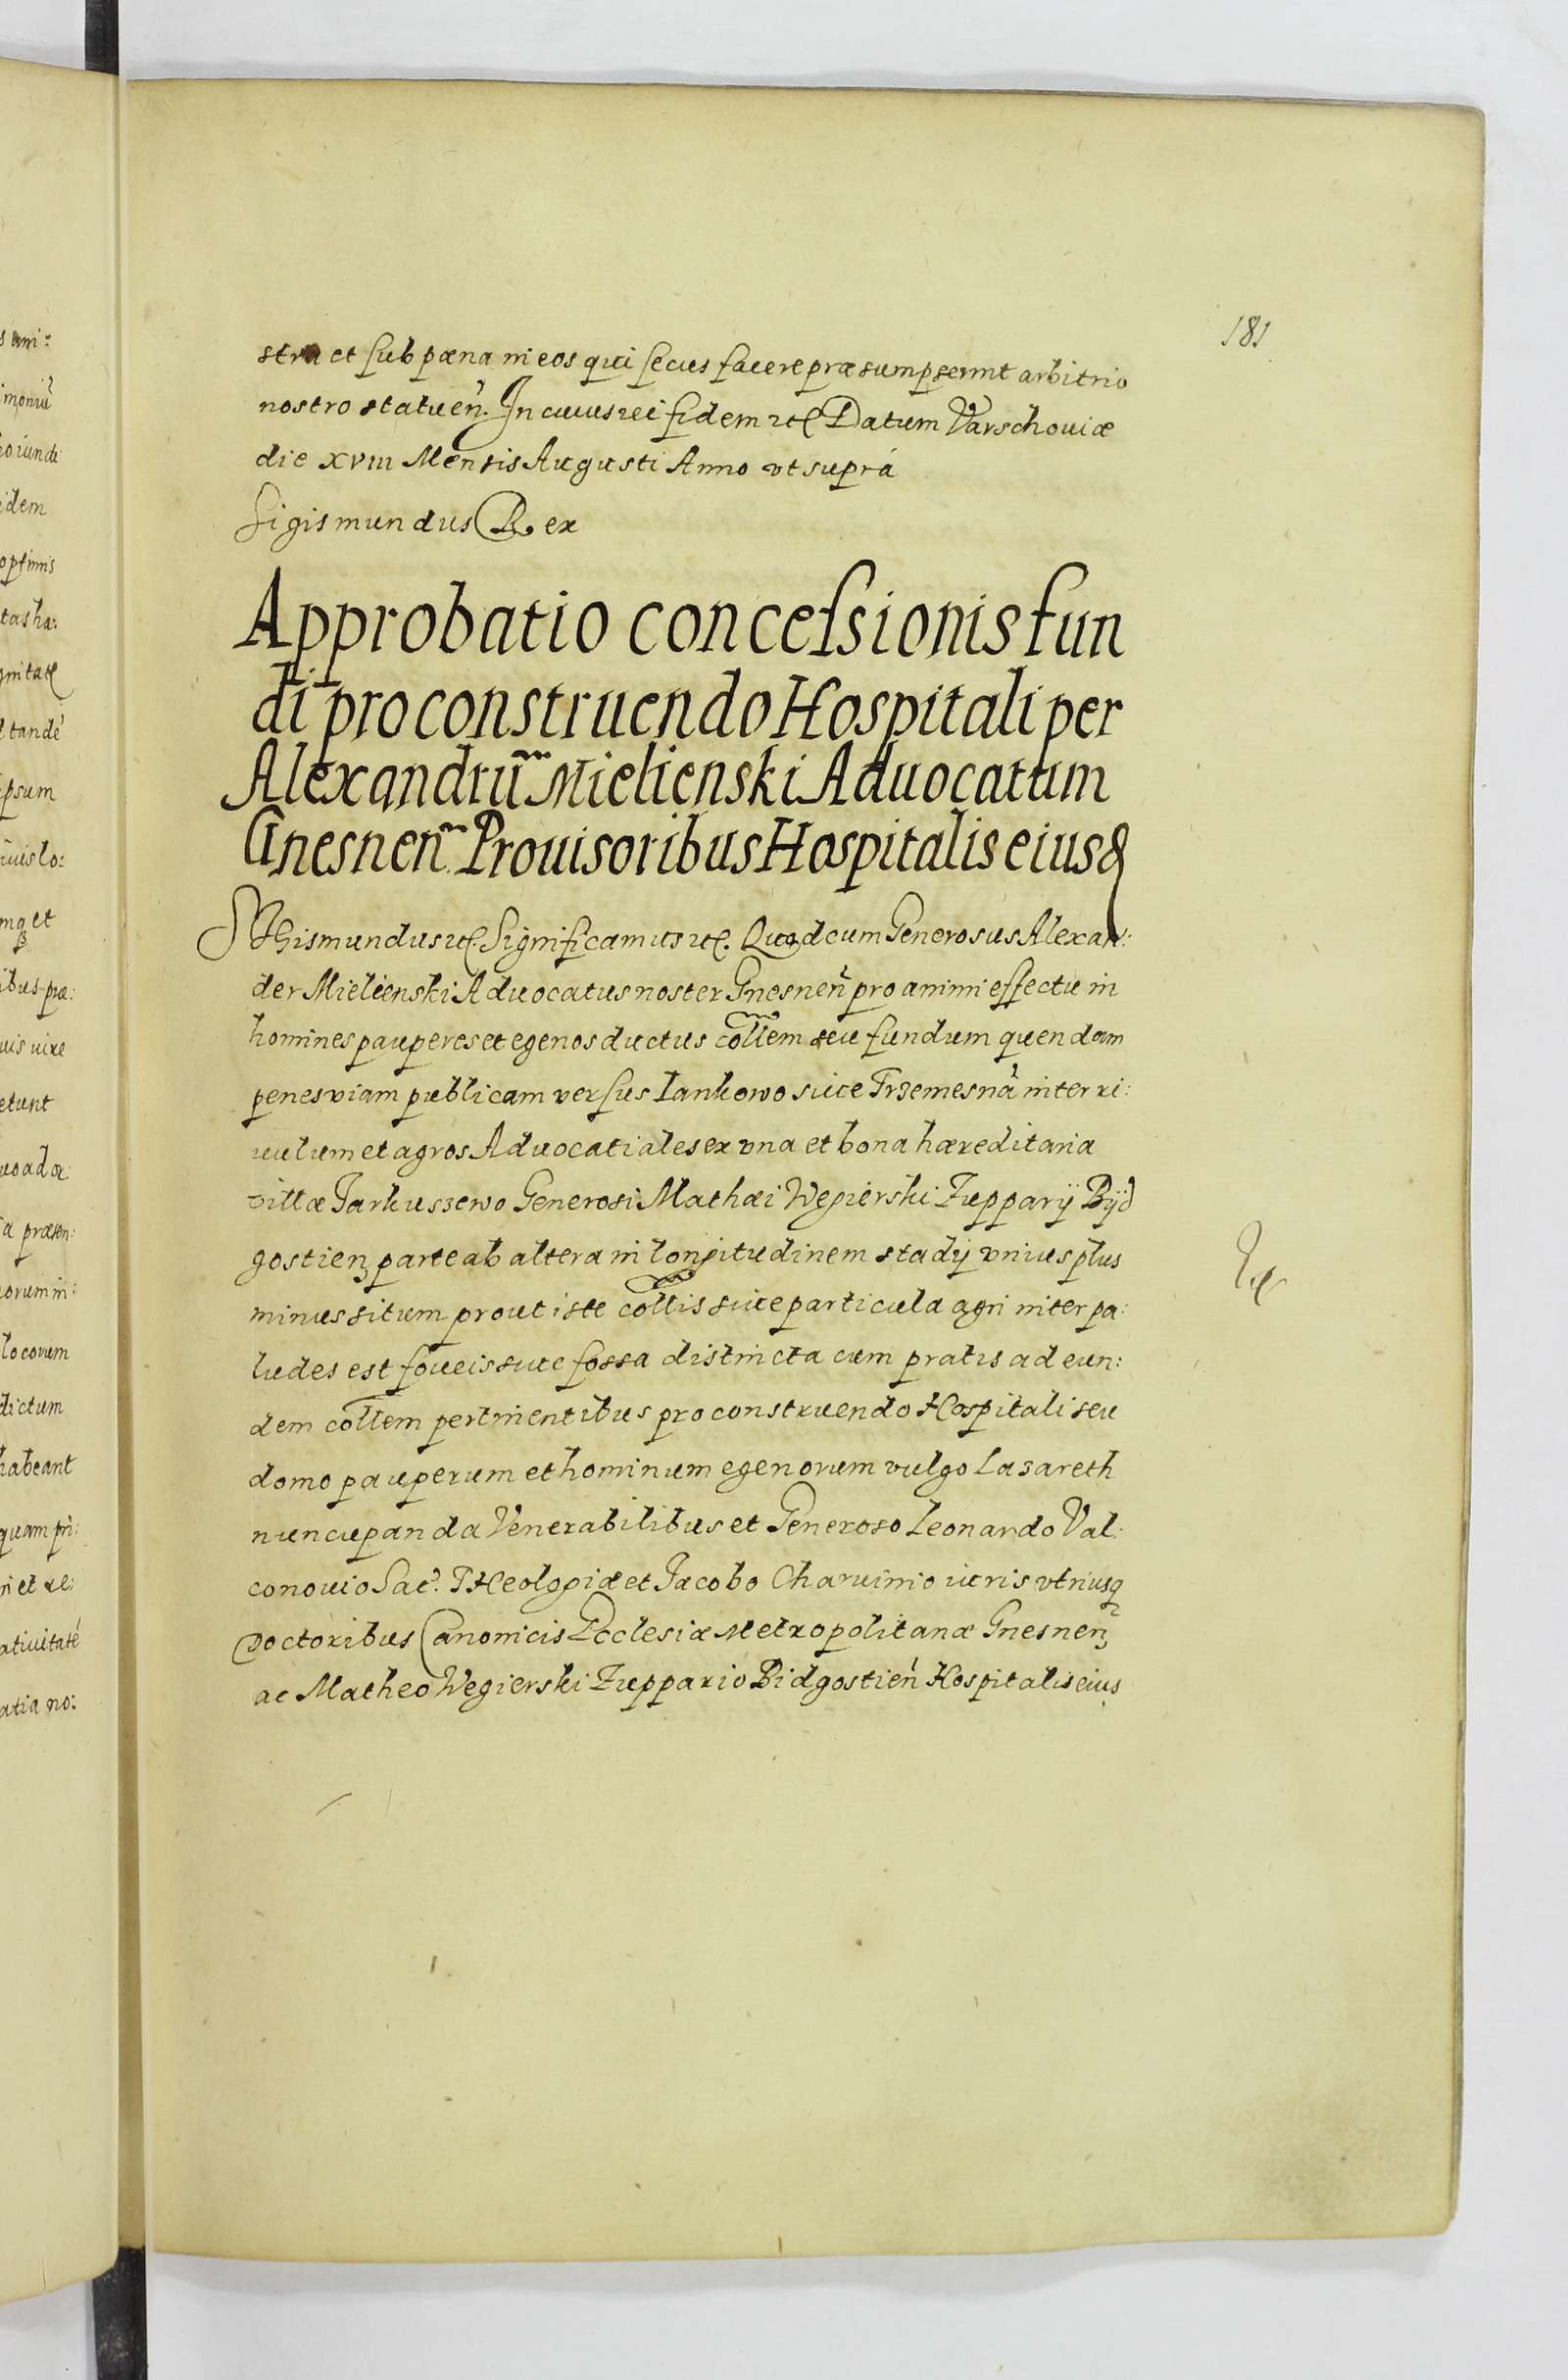 181
stra et sub pœna in eos qui secus facere præsumpserint arbitrio
nostro statueń. In cuius rei fidem etc Datum Varschouiæ
die XVIII Mensis Augusti Anno vt suprá
Sigismundus Rex
Approbatio concessionis fun
di pro construendo Hospitali per
Alexandrũ Mielienski Aduocatum
Gnesneñ. Prouisoribus Hospitalis eiusd
Sigismundus etc. Significamus etc. Quod cum Generosus Alexan:
der Mielienski Aduocatus noster Gnesneń pro animi effectu in
homines pauperes et egenos ductus collem seu fundum quendam
penes viam publicam versus Iankowo siue Trzemesná inter ri:
uulum et agros Aduocatiales ex vna et bona hæreditaria
villæ Jarkuszewo Generosi Mathæi Wegierski Zupparÿ Bÿd
gostien parte ab altera in longitudinem stadÿ vnius plus
minus situm prout iste collis siue particula agri inter pa:
ludes est foueis siue fossa distincta cum pratis ad eun:
dem collem pertinentibus pro construendo Hospitali seu
domo pauperum et hominum egenorum vulgo Lazareth
nuncupanda Venerabilibus et Generoso Leonardo Val:
conouio Sac. THeologiæ et Jacobo Charuinio iuris vtriusq
Doctoribus Canonicis Ecclesiæ Metropolitanæ Gnesneñ
ac Matheo Wegierski Zuppario Bidgostień Hospitalis eius